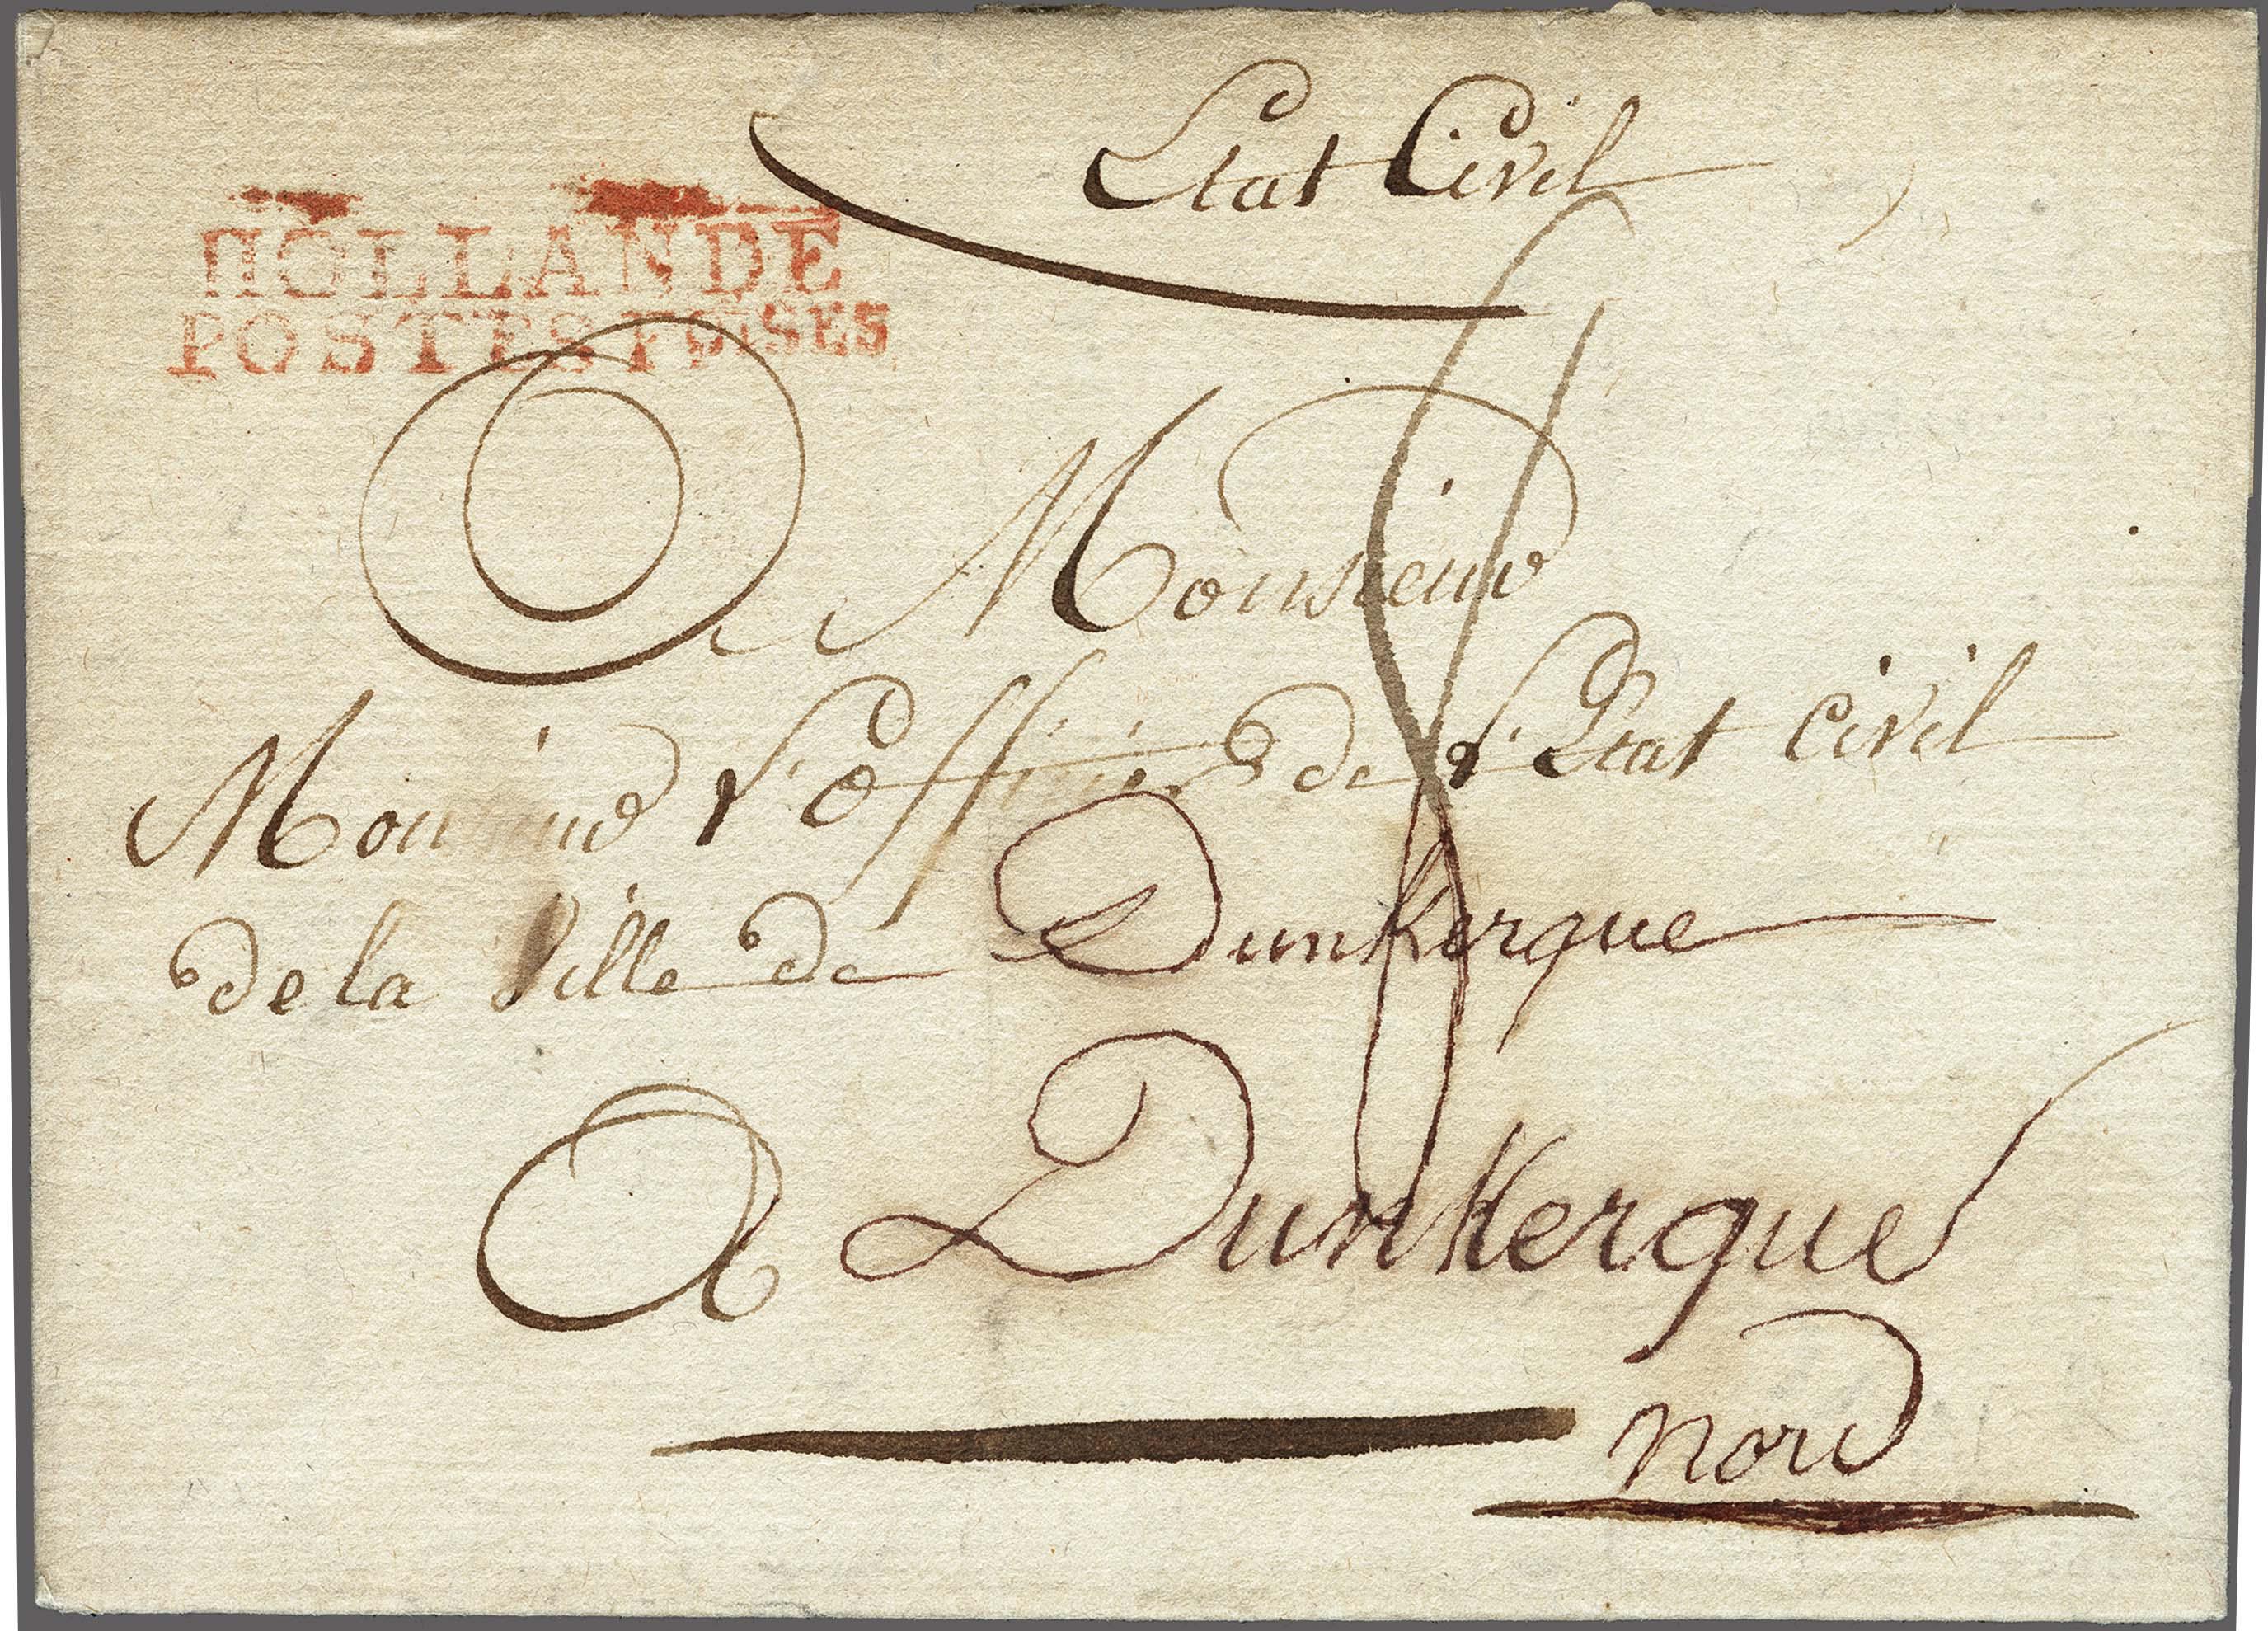 Etat Civil
HOLLANDE
POSTES FÇ:SES
A Monsieur
Monsieur l'officier de l'Etat Civil
de la Ville de Dunkerque
A Dunkerque
nord